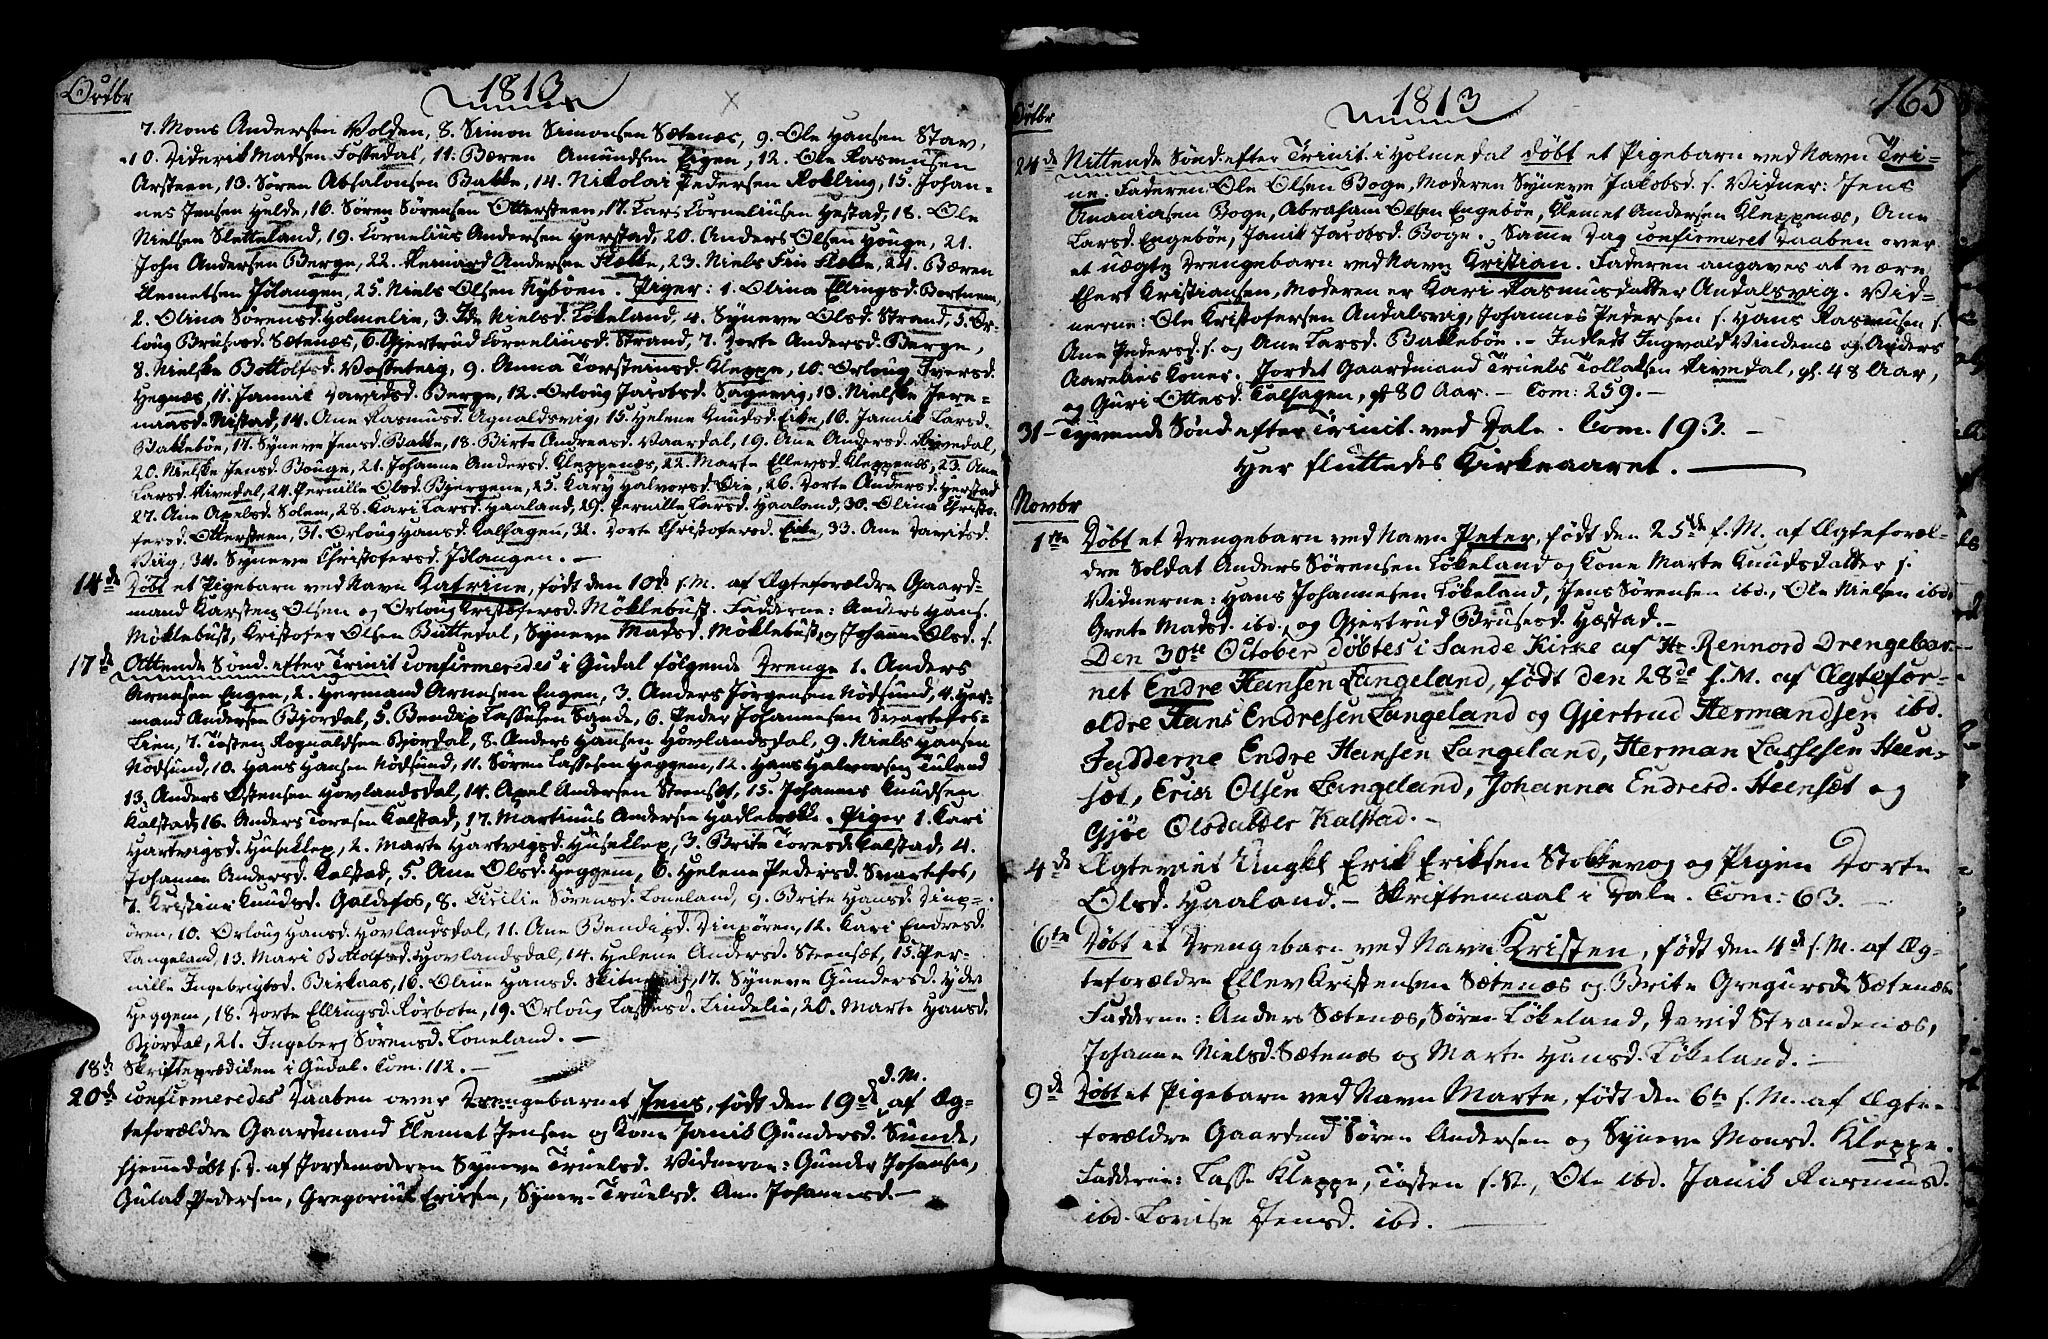 Octbr
1813
7. Mons Andersen Volden, 8. Simon Simonsen Sætenæs, 9. Ole Hansen Stav,
10. Diderik Madsen Fossedal, 11. Bæren Amundsen Eigen, 12. Ole Rasmusen
Arsteen, 13. Sören Absalonsen Bakke, 14. Nikolai Pedersen Rokling, 15. Johan-
nes Jensen Helde, 16. Sören Sörensen Ottersteen, 17. Lars Corneliusen Hestad, 18. Ole
Nielsen Sletteland, 19. Cornelius Andersen Herstad, 20. Anders Olsen Houge, 21.
John Andersen Berge, 22. Rernard Andersen Flekke, 23. Niels Friis Flekke, 24. Bæren
Clemetsen Yılangen, 25. Niels Olsen Nyböen. Piger: 1. Olina Ellingsd. Bortnem,
2. Olina Sörensd. Holmelie, 3. Ide Nielsd. Lökeland, 4. Syneve Olsd. Strand, 5. Or-
loug Brusesd. Sætenæs, 6. Gjertrud Corneliusd. Strand, 7. Dorte Andersd. Berge,
8. Nielske Bottolfsd. Vosseteig, 9. Anna Torsteinsd. Kleppe, 10. Orloug Iversd.
Hegnæs, 11. Jannik Davidsd. Berge, 12. Orloug Jacobsd. Sagevig, 13. Nielske Jere-
miasd. Nistad, 14. Ane Rasmusd. Agnaldsvig, 15. Helene Knudsd. Eike, 16. Jannik Larsd.
Bakkeböe, 17. Syneve Jensd. Bakke, 18. Birte Andreasd. Vaardal, 19. Ane Andersd. Rivedal,
20. Nielske Jensd. Bouge, 21. Johanne Andersd. Kleppenæs, 22. Marte Ellevsd. Kleppenæs, 23. Ane
Larsd. Rivedal, 24. Pernille Olsd. Bjergene, 25. Kary Halvorsd. Öie, 26. Dorte Andersd. Herstad
27. Ane Axelsd. Solem, 28. Kari Larsd. Haaland, 29. Pernille Larsd. Haaland, 30. Olina Christo-
fersd. Ottersteen, 31. Orloug Hansd. Kalsagen, 32. Dorte Christofersd. Eike, 33. Ane Davidsd.
Viig, 34. Syneve Christofersd. Yılangen. —
14de Döbt et Pigebarn ved Navn Katrine, födt den 10de s. M. af Ægteforældre Gaard-
mand Karsten Olsen og Orloug Kristofersd. Möklebust. Fadderne: Anders Hans.
Möklebust, Kristofer Olsen Buttedal, Syneve Madsd. Möklebust, og Johanne Olsd. s.
17de Attende Sönd. efter Trinit. confirmeredes i Gudal fölgende Drenge 1. Anders
Arnesen Engen, 2. Hermand Arnesen Engen, 3. Anders Jörgensen Nödsund, 4. Her-
mand Andersen Björdal, 5. Bendix Lassesen Sande, 6. Peder Johannesen Svartefos-
Lien, 7. Tosten Rognaldsen Bjordal, 8. Anders Hansen Hovlandsdal, 9. Niels Hansen
Nödsund, 10. Hans Hansen Nödsund, 11. Sören Lassesen Heggem, 12. Hans Halvorsen Tuland
13. Anders Östensen Hovlandsdal, 14. Axel Andersen Steensæt, 15. Johannes Knudsen
Kalstad, 16. Anders Toresen Kalstad, 17. Martinus Andersen Hadlebrekke. Piger 1. Kari
Hartvigsd. Huseklep, 2. Marte Hartvigsd. Huseklep, 3. Brite Toresd. Kalstad, 4.
Johanne Andersd. Kalstad, 5. Ane Olsd. Heggem, 6. Helene Pedersd. Svartefos,
7. Kristine Knudsd. Galdefos, 8. Cicilie Sörensd. Loneland, 9. Brite Hansd. Dinx-
ören, 10. Orloug Hansd. Hovlandsdal, 11. Ane Bendixd. Dinxören, 12. Kari Endresd.
Langeland, 13. Mari Bottolfsd. Hovlandsdal, 14. Helene Andersd. Steensæt, 15. Per-
nille Ingebrigtsd. Birkaas, 16. Oline Hansd. 17. Syneve Gundersd. Ydre
Heggem, 18. Dorte Ellingsd. Rörbote, 19. Orloug Lassesd. Lindelie, 20. Marte Hansd.
Bjordal, 21. Ingeberg Sörensd. Loneland. —
18de Skrifteprædiken i Gudal. Com. 112. —
20de confirmeredes Daaben over Drengebarnet Jens, födt den 19de d. M. af Æg-
teforældre Gaardmand Clemet Jensen og Kone Janik Gundersd. Sunde,
hjemmedöbt s. D. af Jordemoderen Syneve Truelsd. Vidnerne: Gunder Johansen,
Gulak Pedersen, Gregorius Ericsen, Syneve Truelsd. Ane Johannesd. —
165
1813
Octbr
24de Nittende Sönd. efter Trinit. i Holmedal döbt et Pigebarn ved Navn Tri-
ne. Faderen Ole Olsen Boge, Moderen Syneve Jakobsd. s. Vidner: Jens
Ananiasen Boge, Abraham Olsen Engeböe, Klemet Andersen Kleppenæs, Ane
Larsd. Engeböe, Janik Jacobsd. Boge. Samme Dag confirmeret Daaben over
et uægte Drengebarn ved Navn Kristian. Faderen angaves at være
Ehert Kristiansen, Moderen er Kari Rasmusdatter Andalsvig. Vid-
nerne: Ole Kristofersen Andalsvig, Johannes Pedersen s. Hans Rasmusen s.
Ane Pedersd. s. og Ane Larsd. Bakkeböe. — Indledt Ingvald Vindenes og Anders
Aarelies Koner. Jordet Gaardmand Truels Tollaksen Rivedal, gl. 48 Aar,
og Guri Ottesd. Kalsagen, gl 80 Aar. — Com: 259. —
31 — Tyvende Sönd. efter Trinit. ved Dale. Com. 193. —
Her sluttedes Kirkeaaret. —
Novbr
1ste Döbt et Drengebarn ved Navn Peter, födt den 25de f. M. af Ægteforæl-
dre Soldat Anders Sörensen Lökeland og Kone Marte Knudsdatter s.
Vidnerne: Hans Johannesen Lökeland, Jens Sörensen ibd., Ole Nielsen ibd.
Grete Madsd. ibd., og Gjertrud Brusesd. Hæstad. —
Den 30te October döbtes i Sande Kirke af Hr Rennord Drengebar-
net Endre Hansen Langeland, födt den 28de s. M. af Ægtefor-
ældre Hans Endresen Langeland og Gjertrud Hermandsen ibd.
Fadderne Endre Hansen Langeland, Herman Lassesen Steen-
sæt, Erik Olsen Langeland, Johanna Endresd. Steensæt og
Gjöe Olsdatter Kalstad. —
4de Ægteviet Ungkl Erik Eriksen Stokkevog og Pigen Dorte
Olsd. Haaland. — Skriftemaal i Dale. Com: 63. —
6te Döbt et Drengebarn ved Navn Kristen, födt den 4de s. M. af Æg-
teforældre Ellev Kristensen Sætenæs og Brite Gregersd. Sætenæs
Fadderne: Anders Sætenæs, Sören Lökeland, David Strandenæs,
Johanne Nielsd. Sætenæs og Marte Hansd. Lökeland. —
9de Döbt et Pigebarn ved Navn Marte, födt den 6te s. M. af Ægte-
forældre Gaardmd Sören Andersen og Syneve Monsd. Kleppe.
Fadderne: Lasse Kleppe, Tosten s. St., Ole ibd. Janik Rasmusd.
ibd. Lovise Jensd. ibd. —